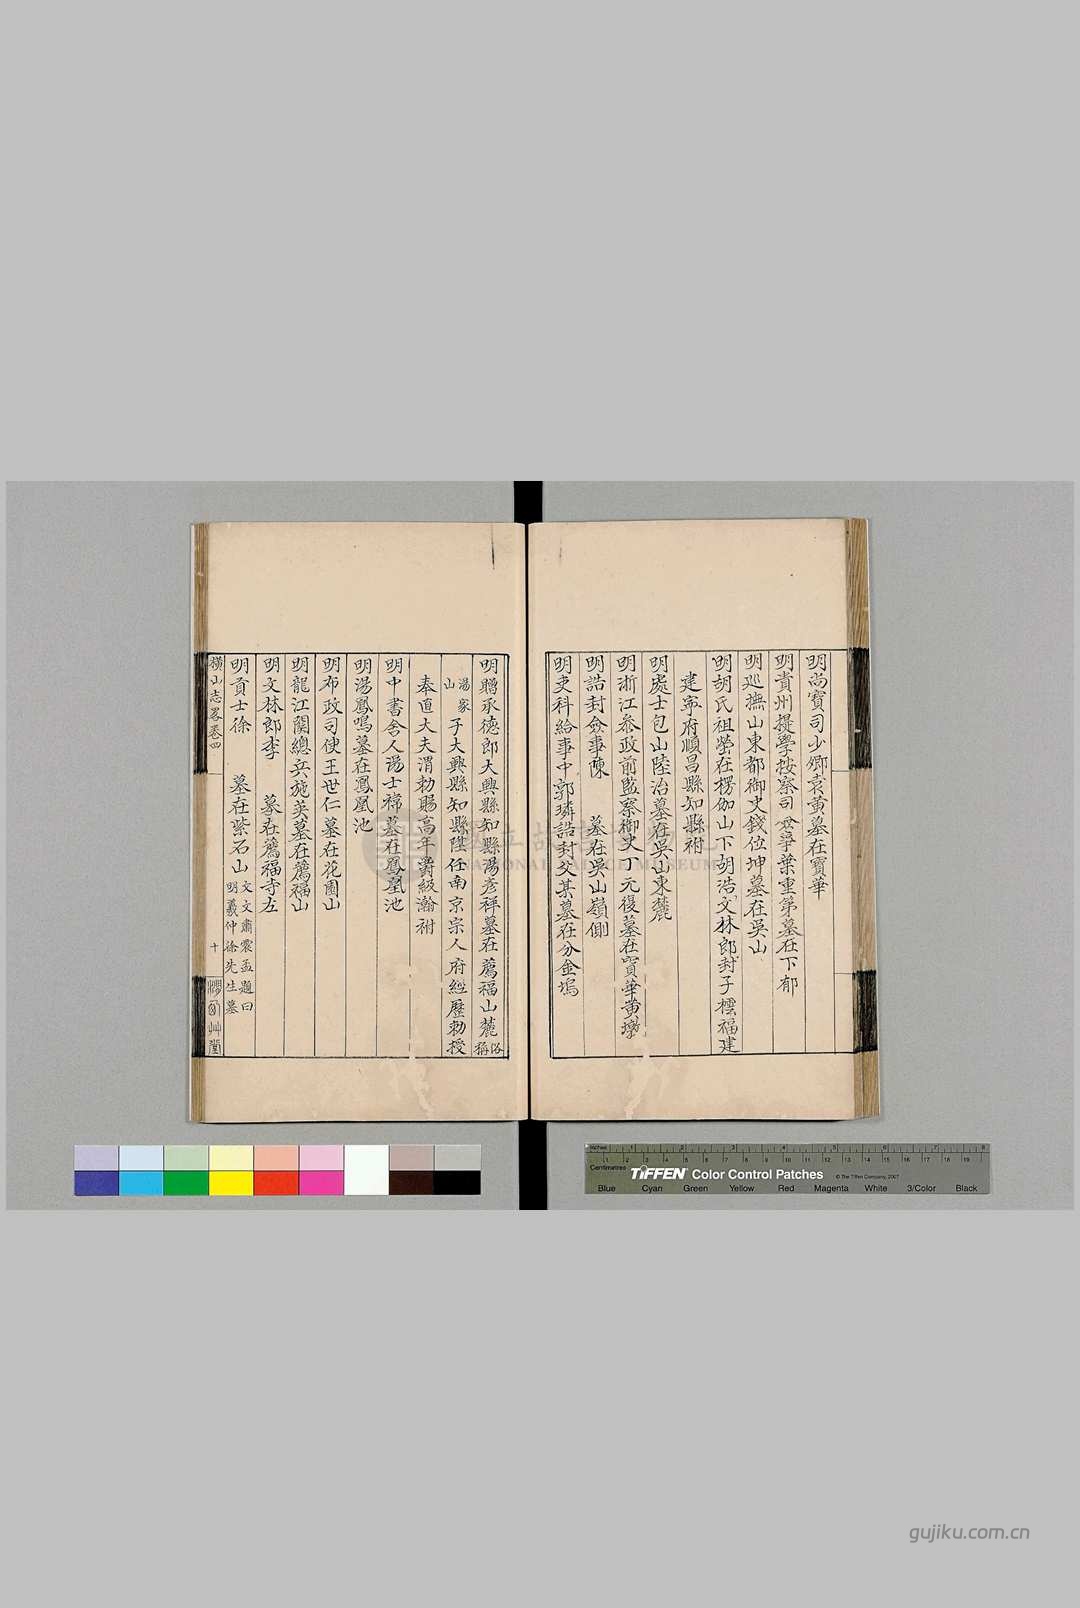 明尚寶司少卿袁黃墓在寶華
明貴州提學按察司 葉重第墓在下郁
明巡撫山東都御史錢位坤墓在吳山
明胡氏祖塋在楞伽山下胡浩文林郎封子橒福建
建寧府順昌縣知縣祔
明處士包山陸治墓在吳山東麓
明浙江參政前監察御史 元復墓在寶華黃墩
明誥封僉事陳 墓在吳山嶺側
明吏科給事中郭璘誥封父某墓在分金塢
明贈承德郎大興縣知縣湯彥祥墓在薦福山麓俗稱
湯家山子大興縣知縣陞任南京宗人府經歷勅授
奉直大夫渭勅賜高年爵級瀚祔
明中書舍人湯士 墓在鳳凰池
明湯鳳鳴墓在鳳凰池
明布政司使王世仁墓在花園山
明龍江關總兵施英墓在薦福山
明文林郎李 墓在薦福寺左
明貢士徐 墓在紫石山文文肅震孟題曰明羲仲徐先生墓
橫山志畧卷四
十
草堂
國立故宮博物院
NATIONAL PALACE MUSEUM
Inches 1 2 3 4 5 6 7 8
Centimetres 1 2 3 4 5 6 7 8 9 10 11 12 13 14 15 16 17 18 19
TIFFEN Color Control Patches © The Tiffen Company, 2007
Blue Cyan Green Yellow Red Magenta White 3/Color Black
gujiku.com.cn